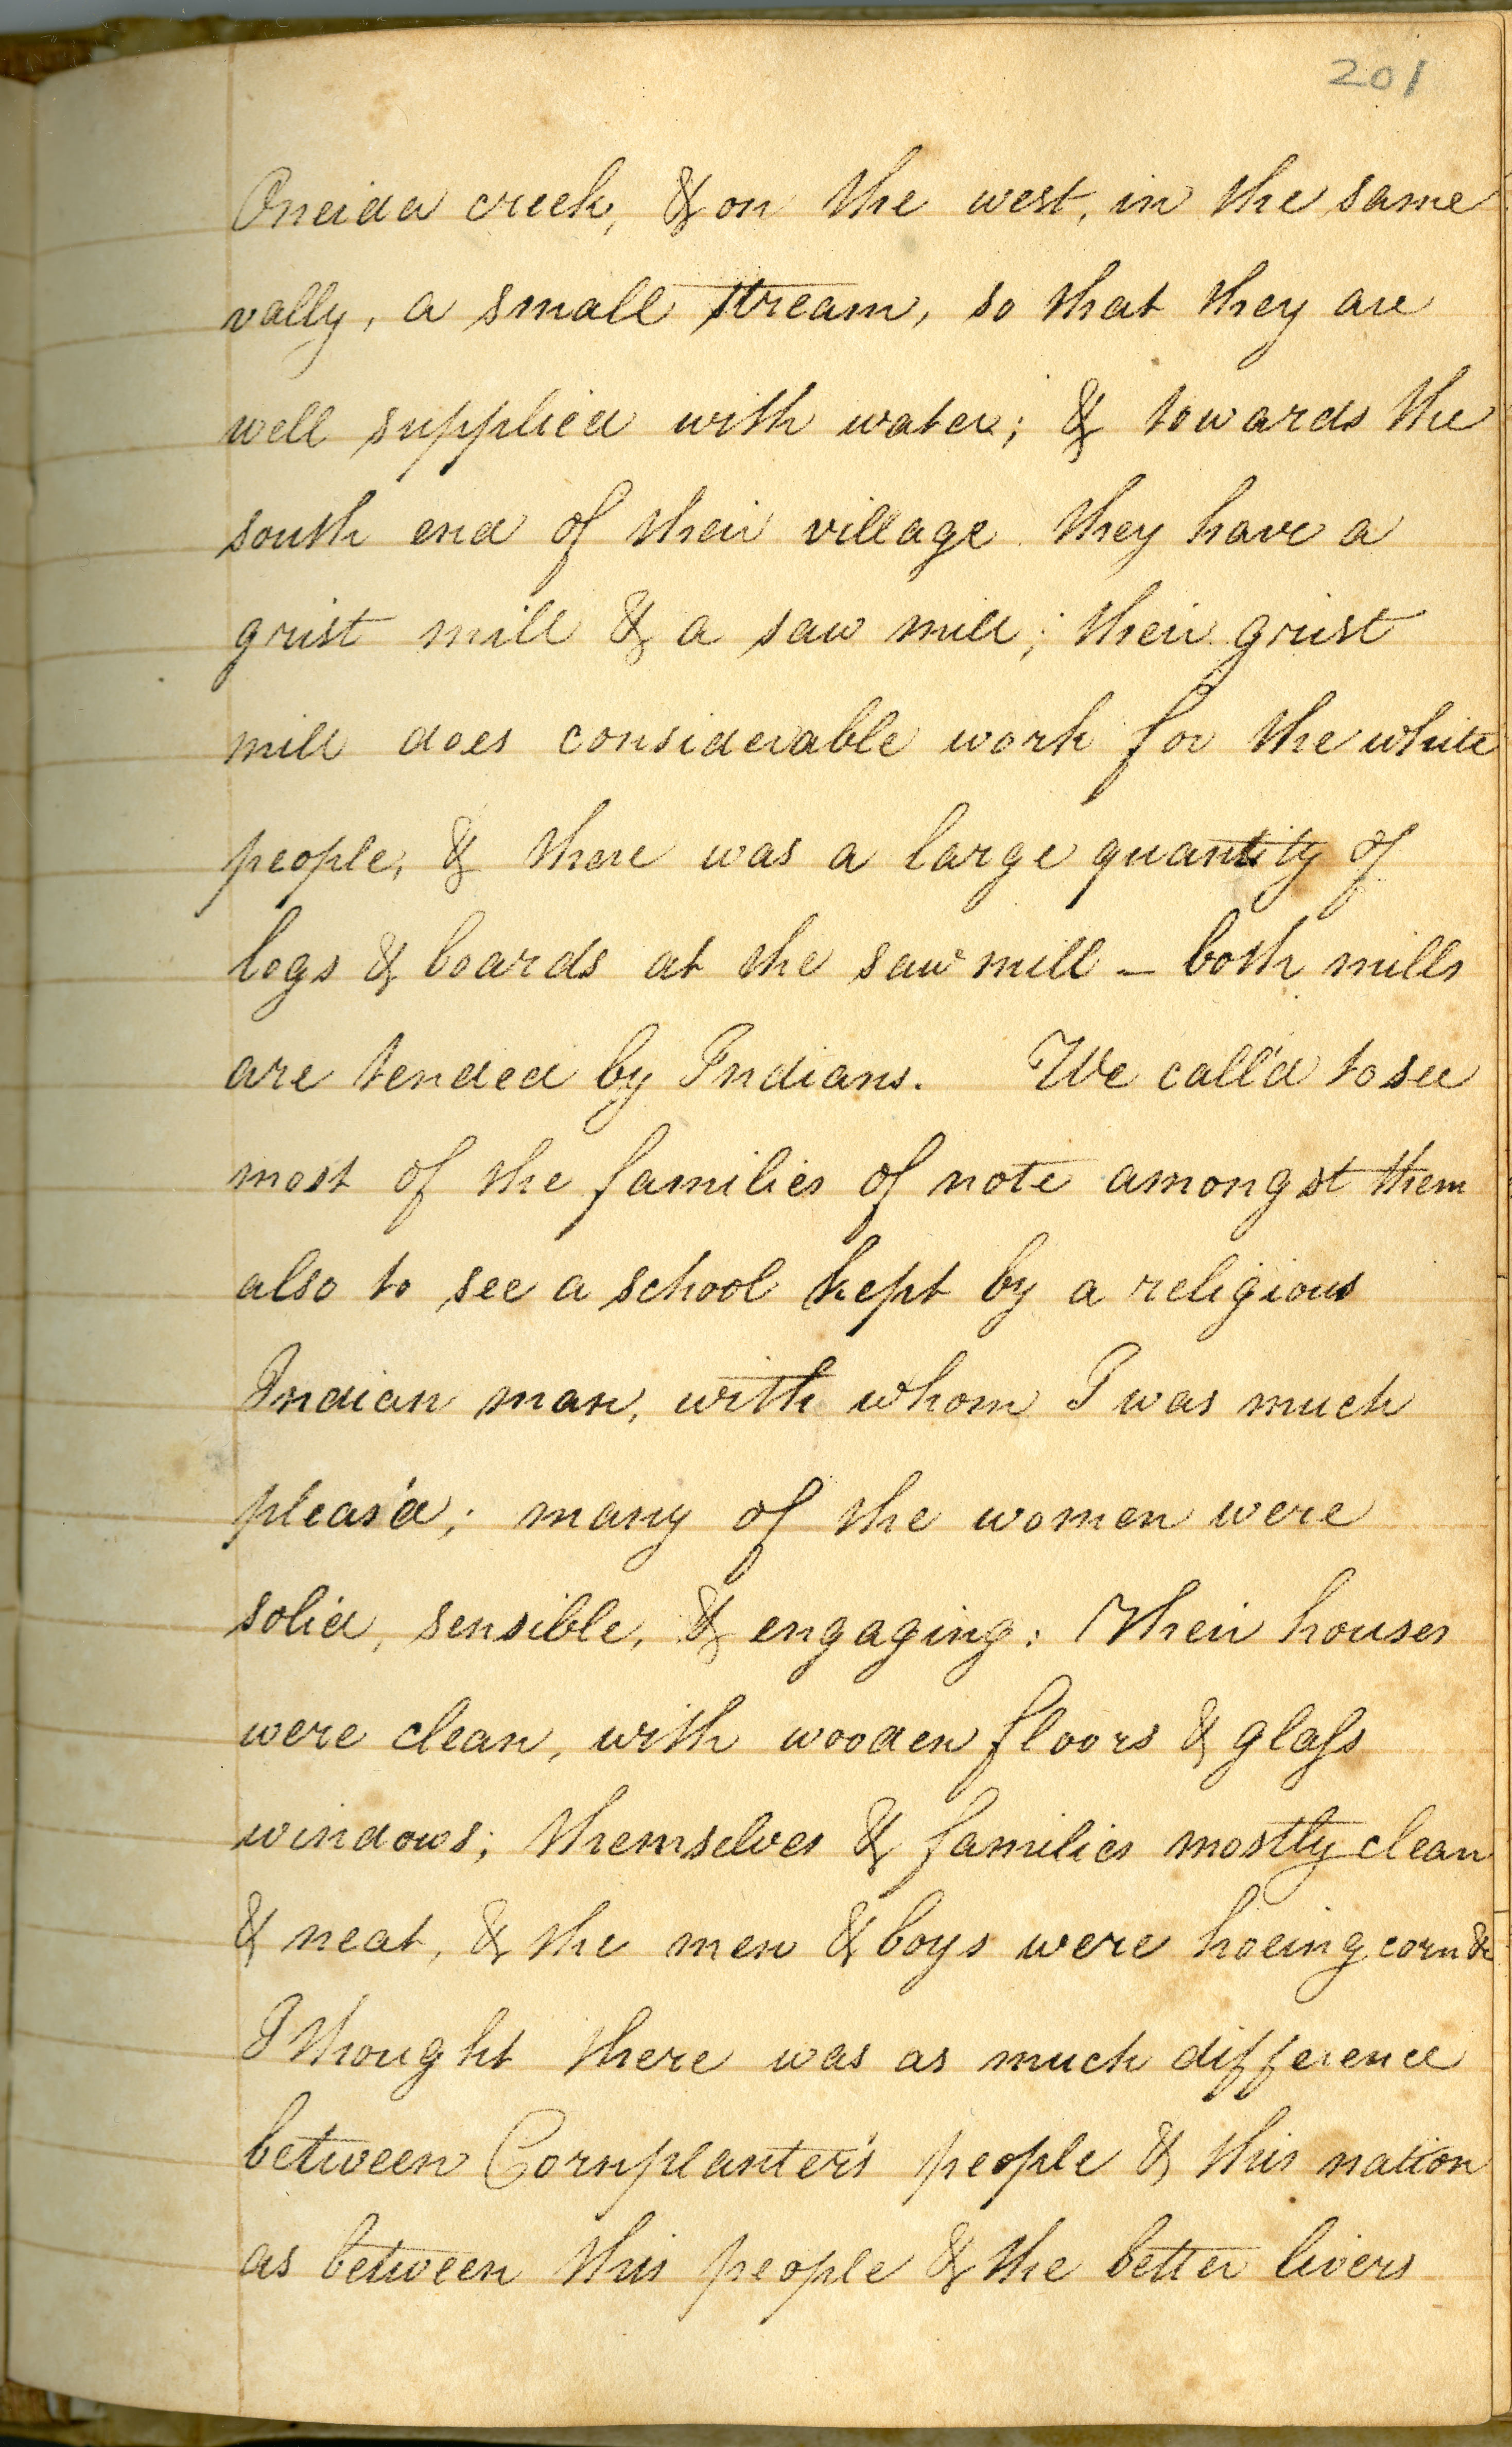 201
Oneida creek, & on the west, in the same
vally, a small stream, so that they are
well supplied with water; & towards the
south end of their village they have a
grist mill & a saw mill; their grist
mill does considerable work for the white
people, & there was a large quantity of
logs & boards at the saw mill – both mills
are tended by Indians. We call'd to see
most of the families of note amongst them
also to see a school kept by a religious
Indian man, with whom I was much
pleas'd; many of the women were
solid, sensible, & engaging: Their houses
were clean, with wooden floors & glaſs
windows; themselves & families mostly clean
& neat, & the men & boys were hoeing corn &c
I thought there was as much difference
between Cornplanter's people & this nation
as between this people & the better livers